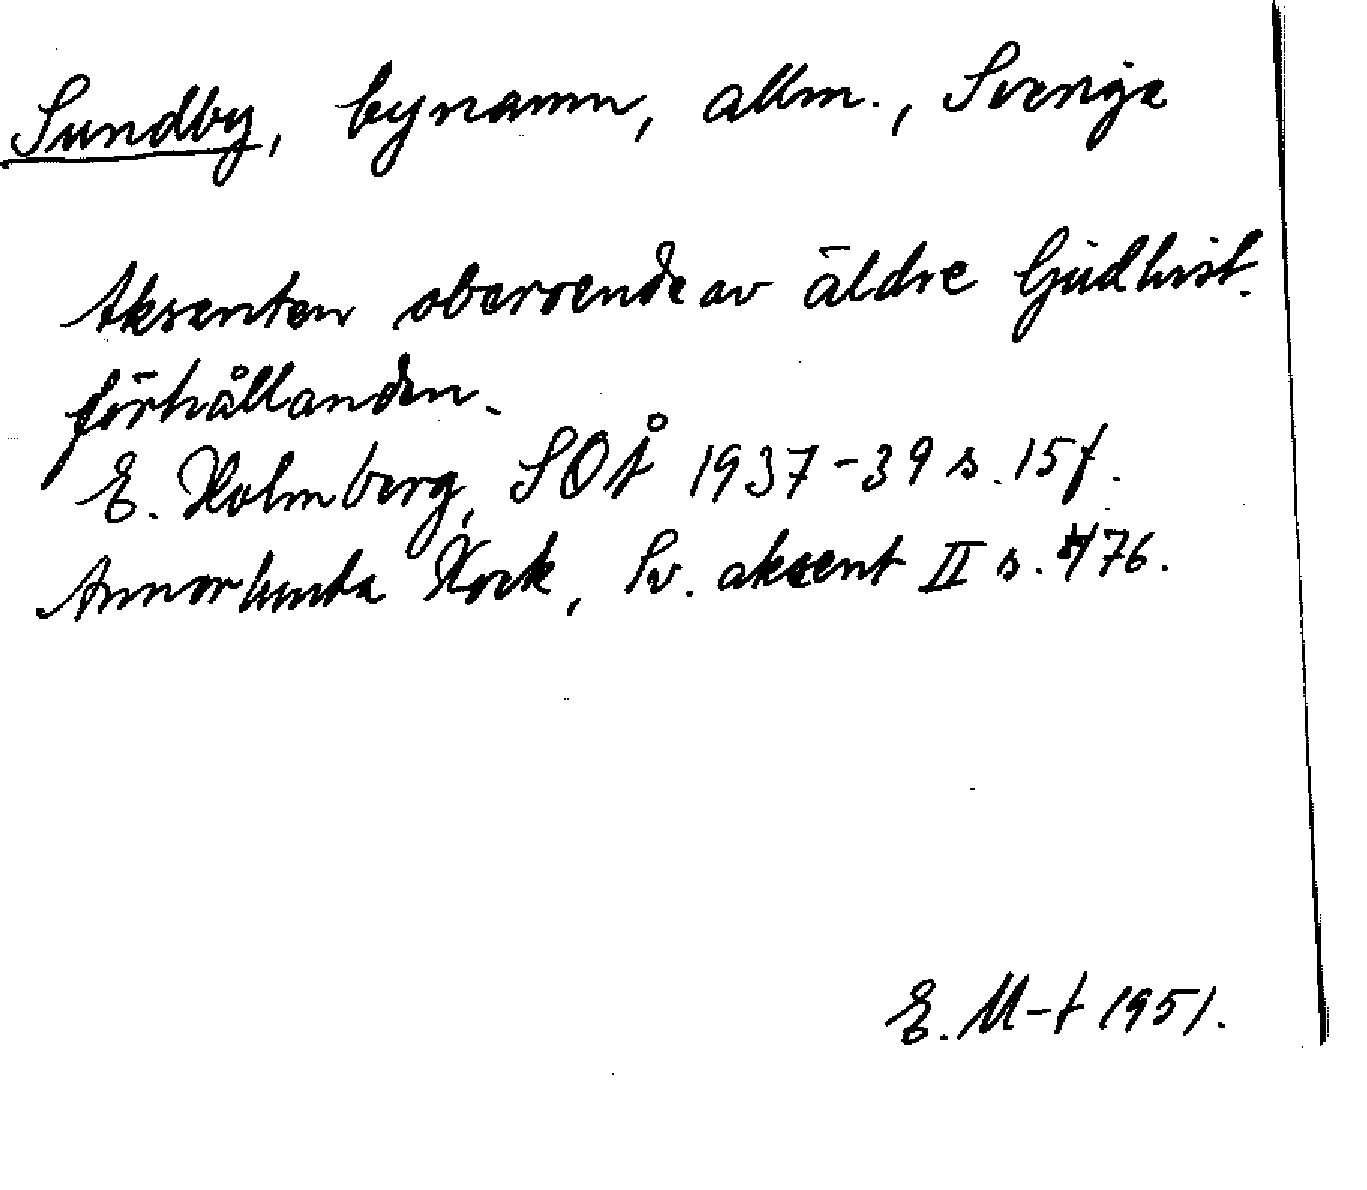 Sundby, bynamn, allm., Sverige
Aksenten oberoende av äldre ljudhist.
förhållanden.
E. Holmberg, SOÅ 1937-39 s. 15 f.
Annorlunda Kock, Sv. aksent II s. 476.
E. M-t 1951.